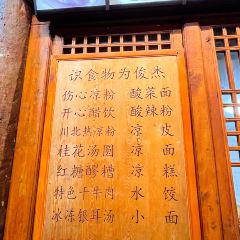 识食物为俊杰
伤心凉粉 酸菜面
开心醋饮 酸辣粉
川北热凉粉 凉皮
桂花汤圆 凉面
红糖醪糟 凉糕
特色干牛肉 水饺
冰冻银耳汤 小面